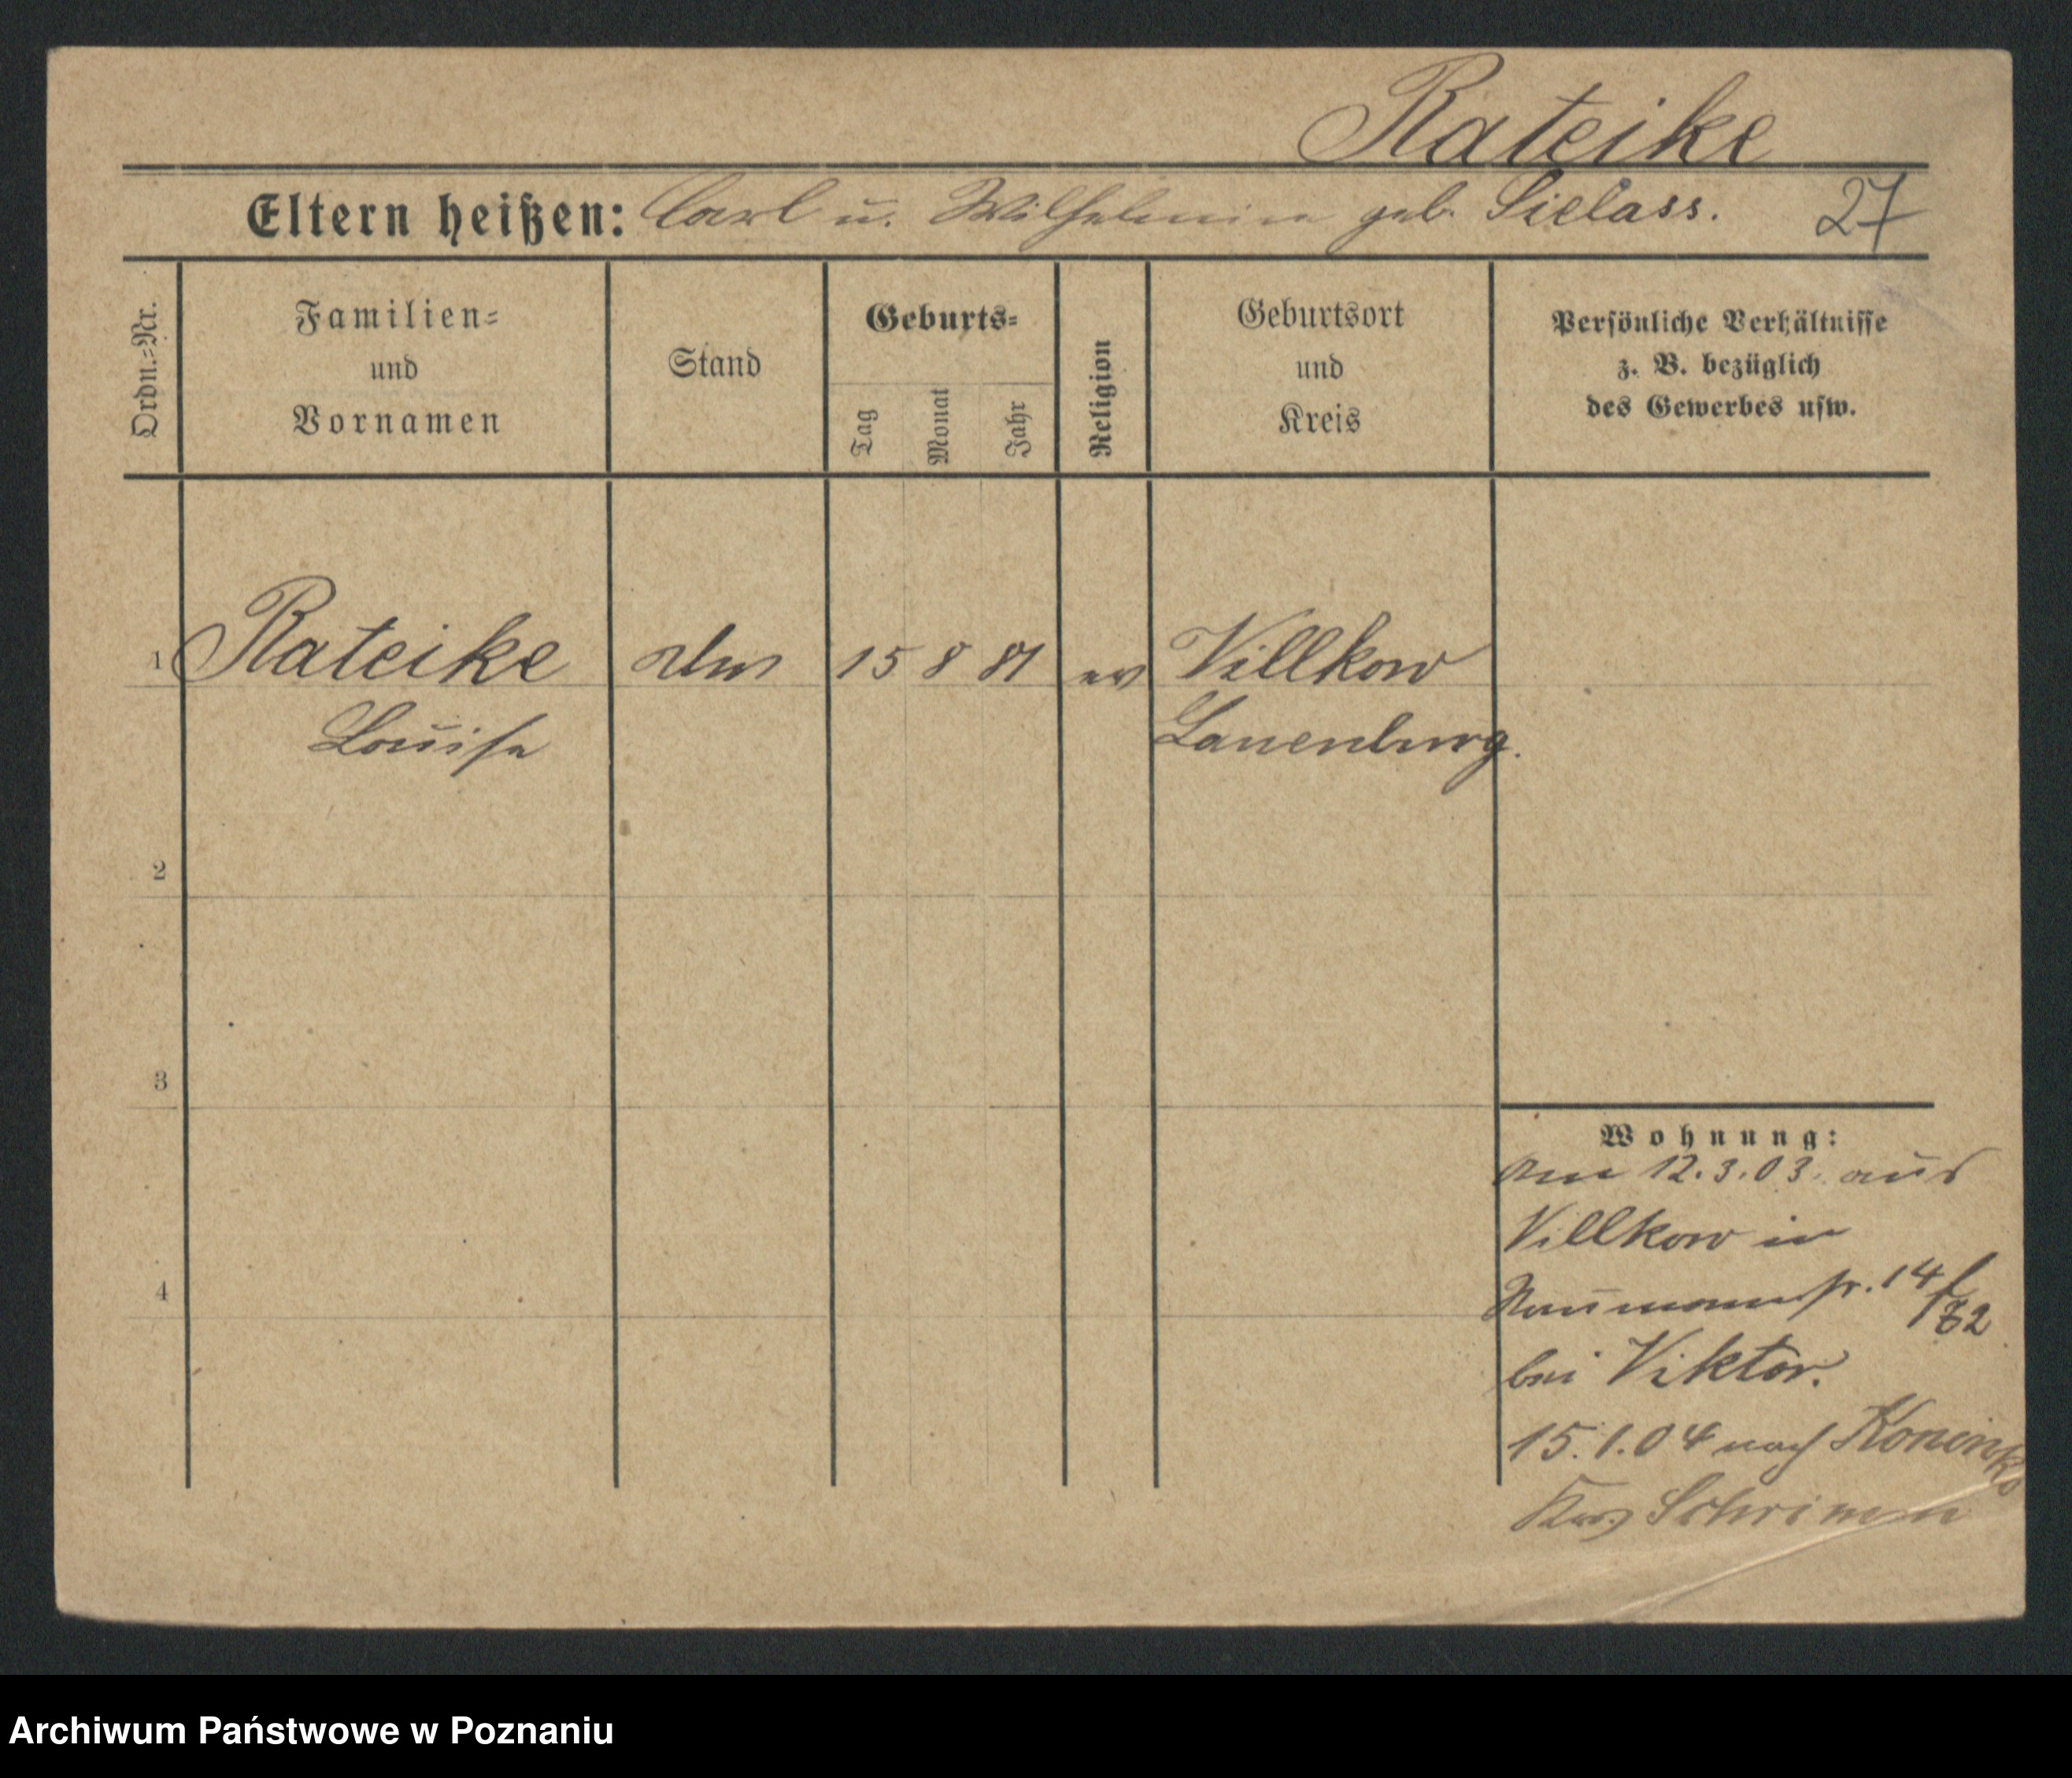 Rateike
Eltern heißen: Carl u. Wilhelmine geb. Sielass. 27
Ordn.=Nr.
Familien=
und
Vornamen
Stand
Geburts=
Tag
Monat
Jahr
Religion
Geburtsort
und
Kreis
Persönliche Verhältnisse
z. B. bezüglich
des Gewerbes usw.
1 Rateike 15 8 81 ev Villkow
Louise Lauenburg.
2
3
4
Wohnung:
12.3.03. aus
Villkow in
Naumannstr. 14
bei Viktor.
15.1.04 nach
Schrimm
Archiwum Państwowe w Poznaniu